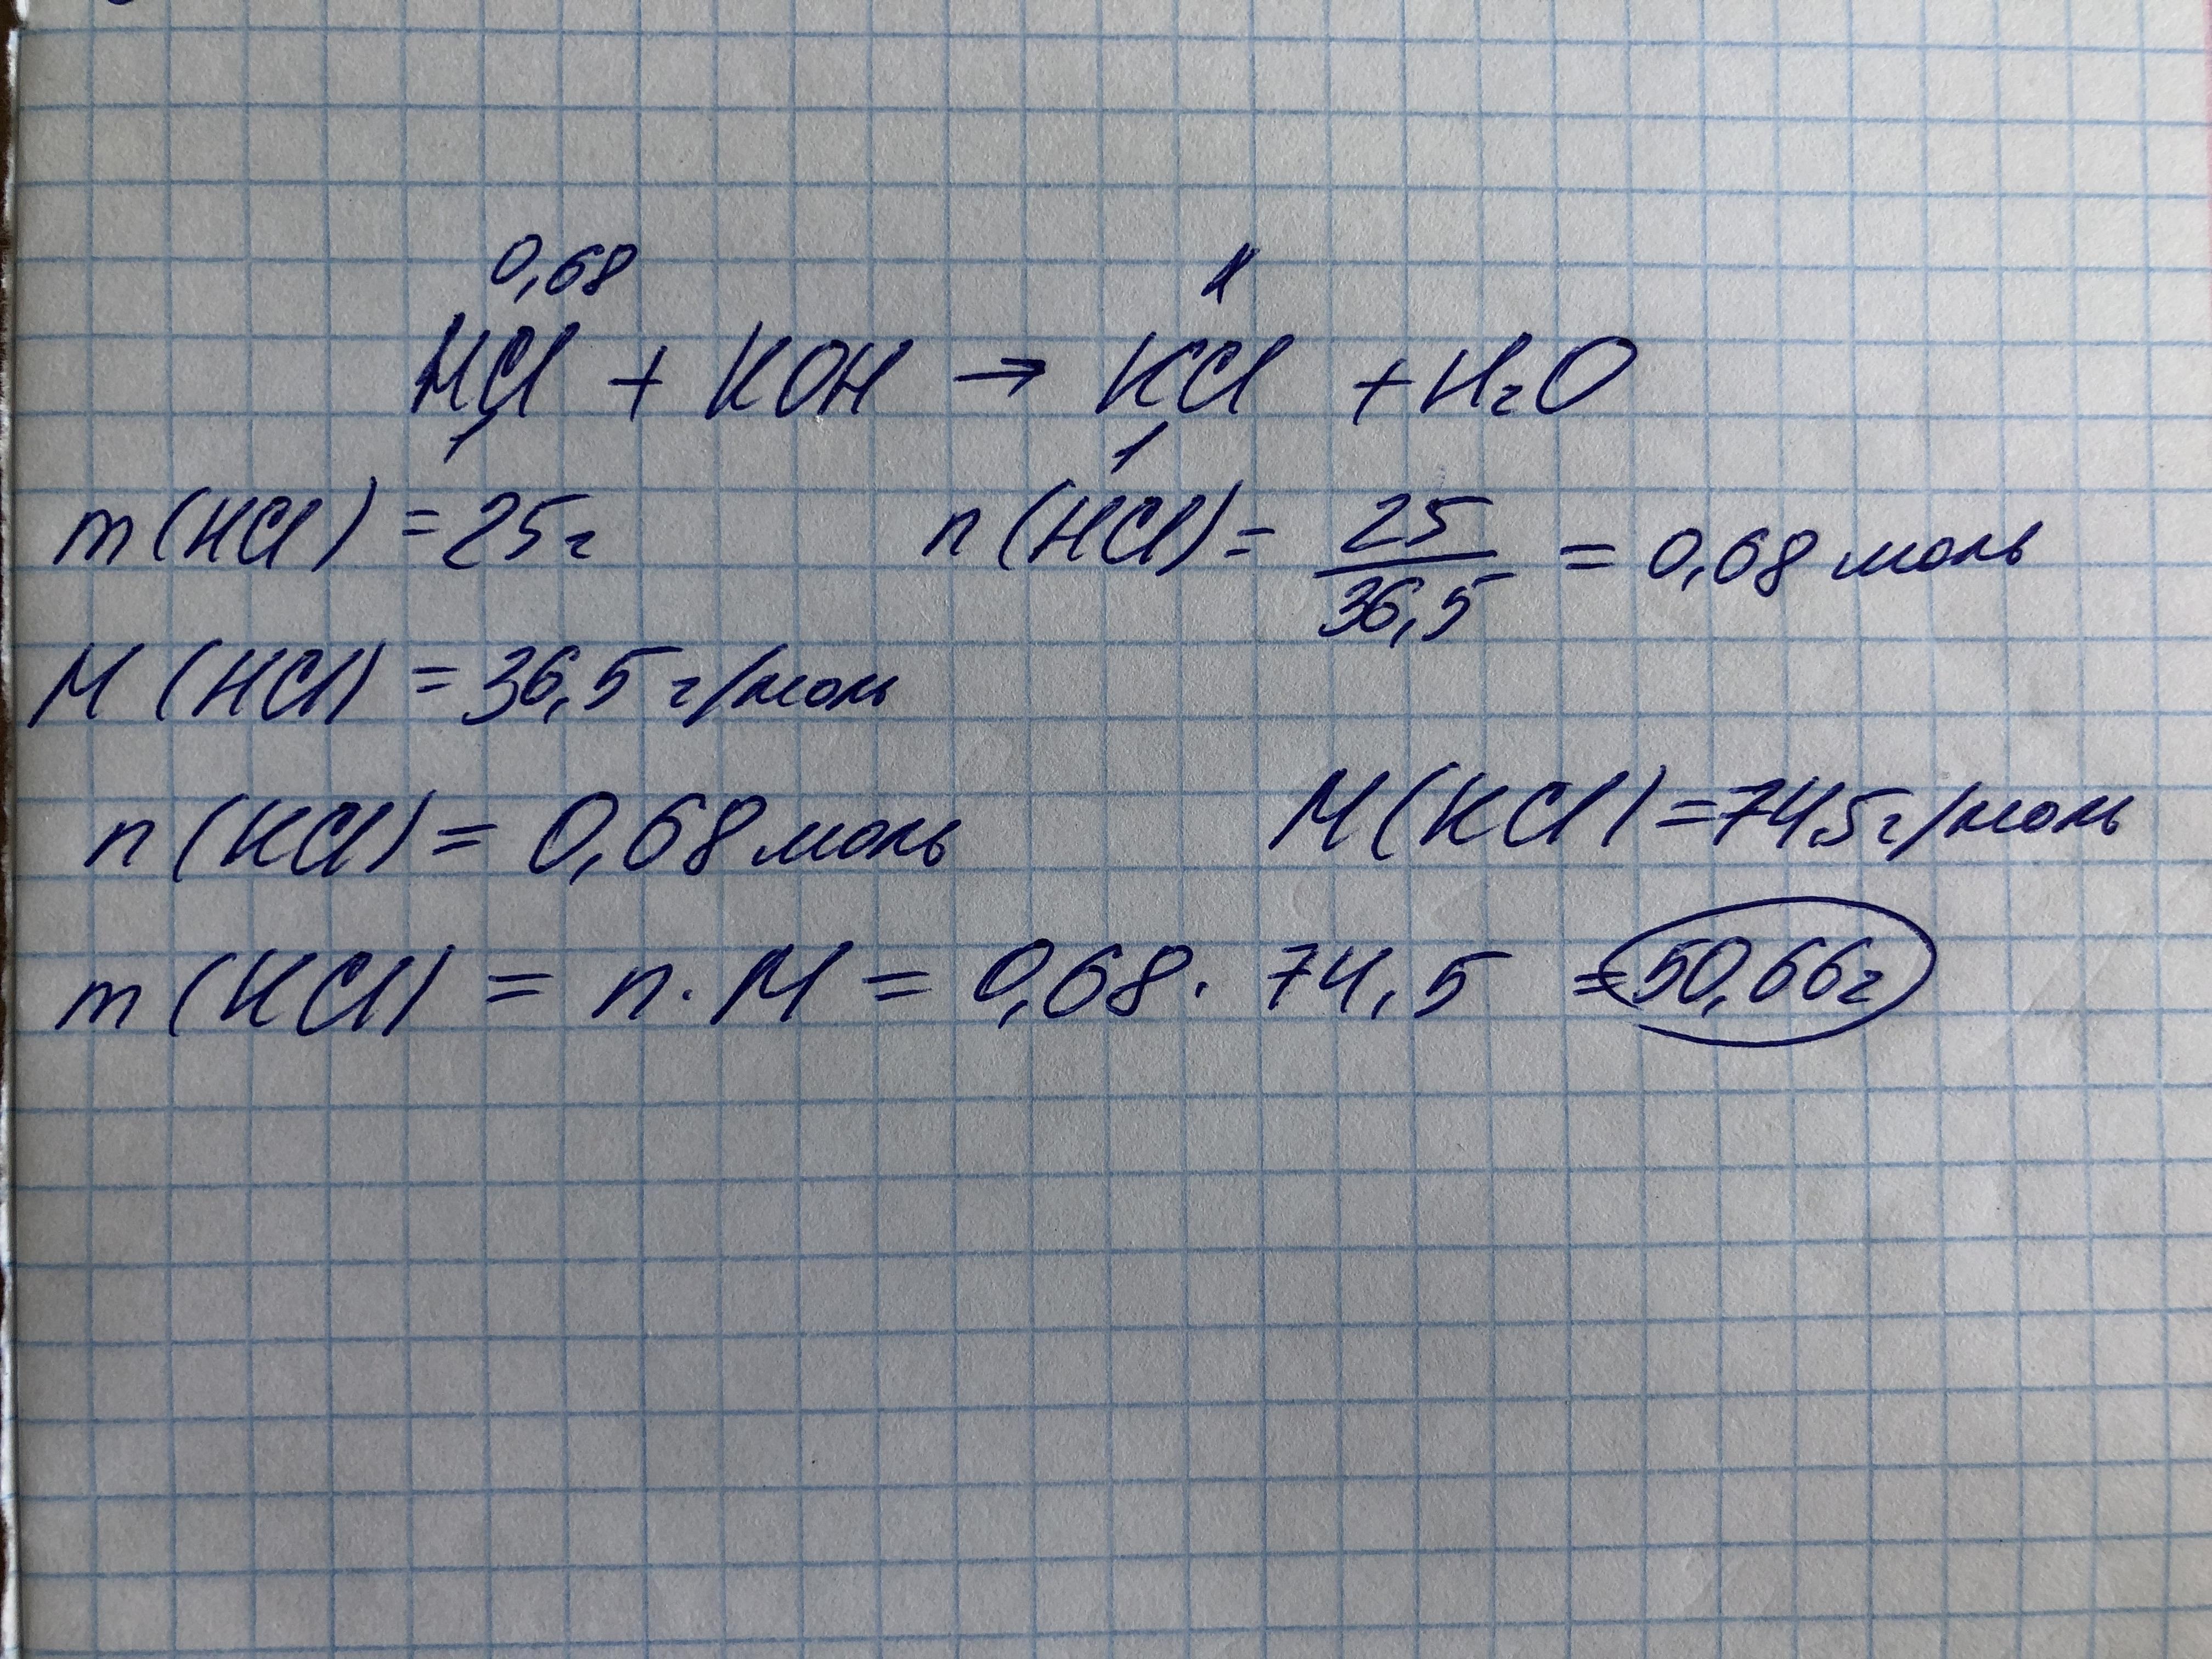 0,68 x
HCl + KOH → KCl + H₂O
1 1
m(HCl) = 25г n(HCl) = 25/36,5 = 0,68 моль
M(HCl) = 36,5 г/моль
n(KCl) = 0,68 моль M(KCl) = 74,5 г/моль
m(KCl) = n · M = 0,68 · 74,5 = 50,66г